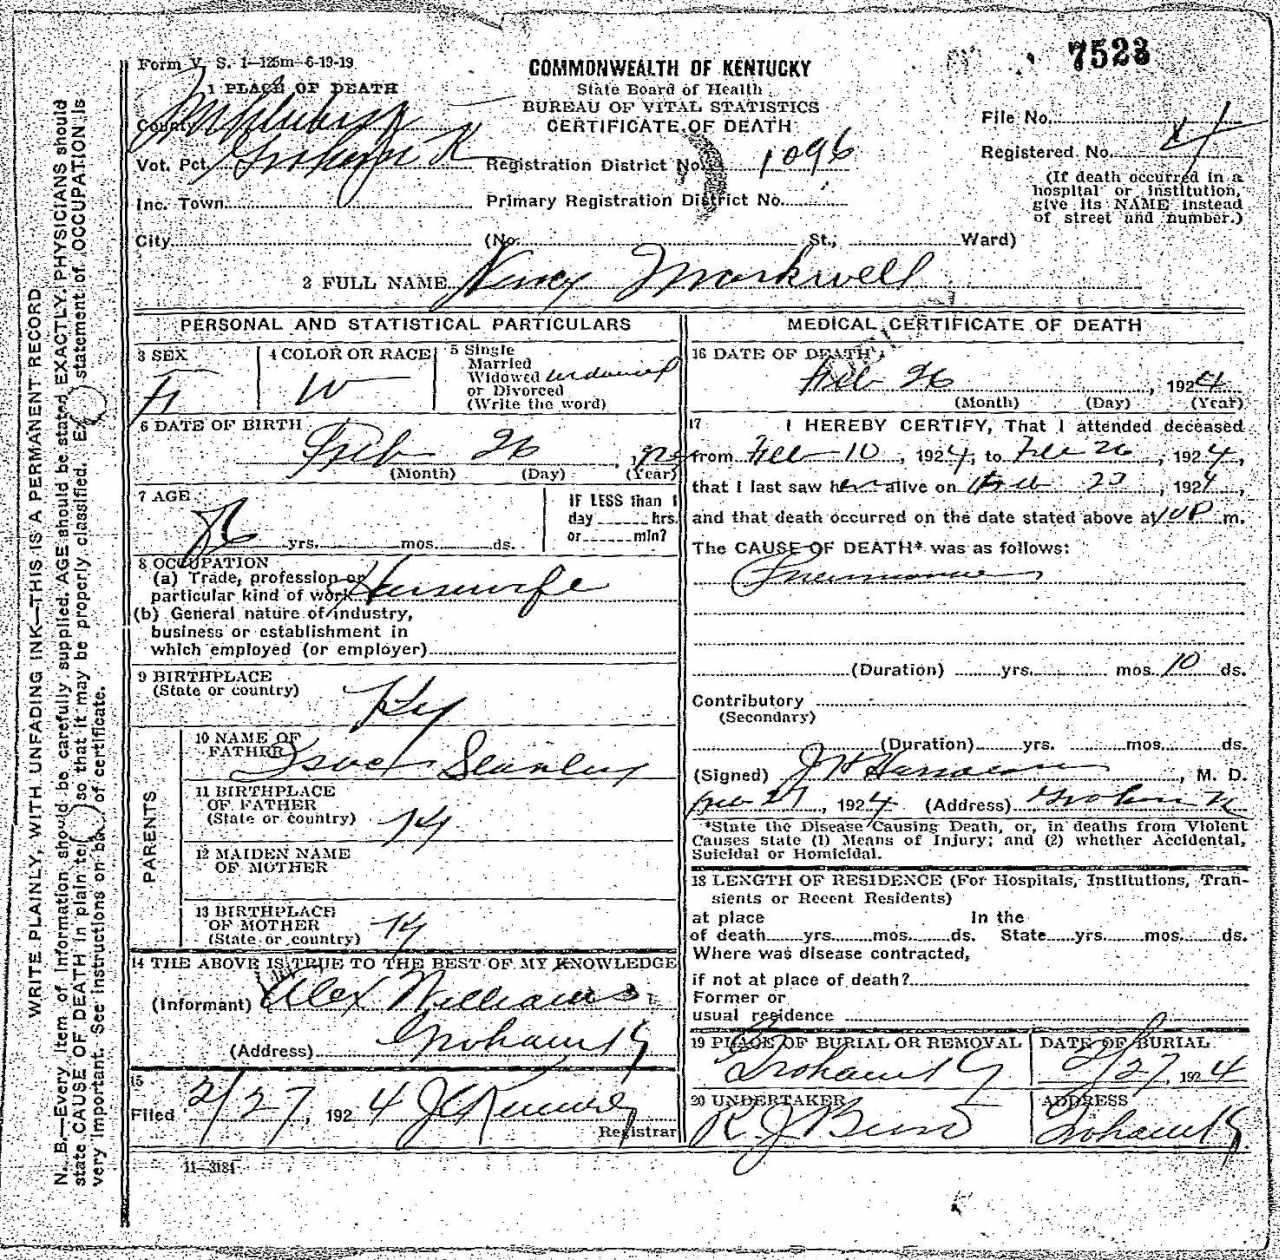 7523
Form V. S. 1—125m—6-19-19
COMMONWEALTH OF KENTUCKY
State Board of Health
BUREAU OF VITAL STATISTICS
CERTIFICATE OF DEATH
1 PLACE OF DEATH
County
Vot. Pct.
Inc. Town
City
Registration District No. 1096
Primary Registration District No.
(No. St.; Ward)
File No.
Registered No. 4
(If death occurred in a
hospital or institution,
give its NAME instead
of street and number.)
2 FULL NAME Nancy Markwell
PERSONAL AND STATISTICAL PARTICULARS
3 SEX
F
4 COLOR OR RACE
W
5 Single
Married
Widowed
or Divorced
(Write the word)
widowed
6 DATE OF BIRTH
Feb 26
(Month) (Day) (Year)
7 AGE
yrs. mos. ds.
IF LESS than 1
day hrs.
or min?
8 OCCUPATION
(a) Trade, profession or
particular kind of work Housewife
(b) General nature of industry,
business or establishment in
which employed (or employer)
9 BIRTHPLACE
(State or country)
Ky
PARENTS
10 NAME OF
FATHER
11 BIRTHPLACE
OF FATHER
(State or country)
Ky
12 MAIDEN NAME
OF MOTHER
13 BIRTHPLACE
OF MOTHER
(State or country)
Ky
14 THE ABOVE IS TRUE TO THE BEST OF MY KNOWLEDGE
(Informant) Alex Williams
(Address)
15
Filed 2/27, 1924
Registrar
11—3184
MEDICAL CERTIFICATE OF DEATH
16 DATE OF DEATH
Feb 26, 1924
(Month) (Day) (Year)
17 I HEREBY CERTIFY, That I attended deceased
from Feb 10, 1924, to Feb 26, 1924,
that I last saw her alive on Feb 23, 1924,
and that death occurred on the date stated above at 10 P m.
The CAUSE OF DEATH* was as follows:
Pneumonia
(Duration) yrs. mos. 10 ds.
Contributory
(Secondary)
(Duration) yrs. mos. ds.
(Signed) , M. D.
Feb 27, 1924 (Address)
*State the Disease Causing Death, or, in deaths from Violent
Causes state (1) Means of Injury; and (2) whether Accidental,
Suicidal or Homicidal.
18 LENGTH OF RESIDENCE (For Hospitals, Institutions, Tran-
sients or Recent Residents)
at place In the
of death yrs. mos. ds. State yrs. mos. ds.
Where was disease contracted,
if not at place of death?
Former or
usual residence
19 PLACE OF BURIAL OR REMOVAL
DATE OF BURIAL
2/27, 1924
20 UNDERTAKER
ADDRESS
WRITE PLAINLY, WITH UNFADING INK—THIS IS A PERMANENT RECORD
N. B.—Every item of information should be carefully supplied. AGE should be stated EXACTLY. PHYSICIANS should
state CAUSE OF DEATH in plain so that it may be properly classified. statement of OCCUPATION is
very important. See instructions on of certificate.